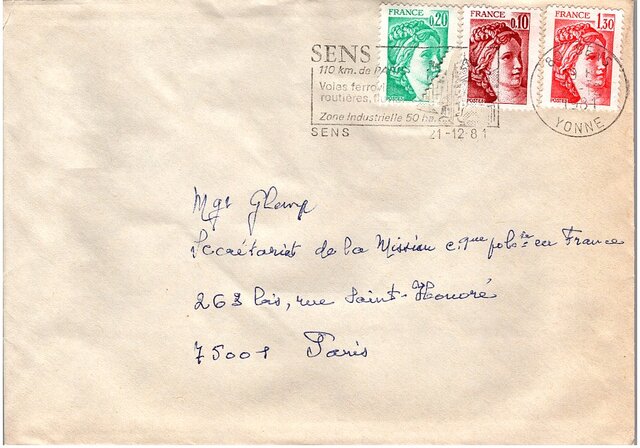 FRANCE
0,20
FRANCE
0,10
FRANCE
1,30
SENS
110 km. de PARIS
Voies ferro
routières, fl
Zone Industrielle 50 ha.
SENS
21-12-81
YONNE
Mgr
Secrétariat de la Mission c.que polse en France
263 bis, rue Saint-Honoré
75001 Paris